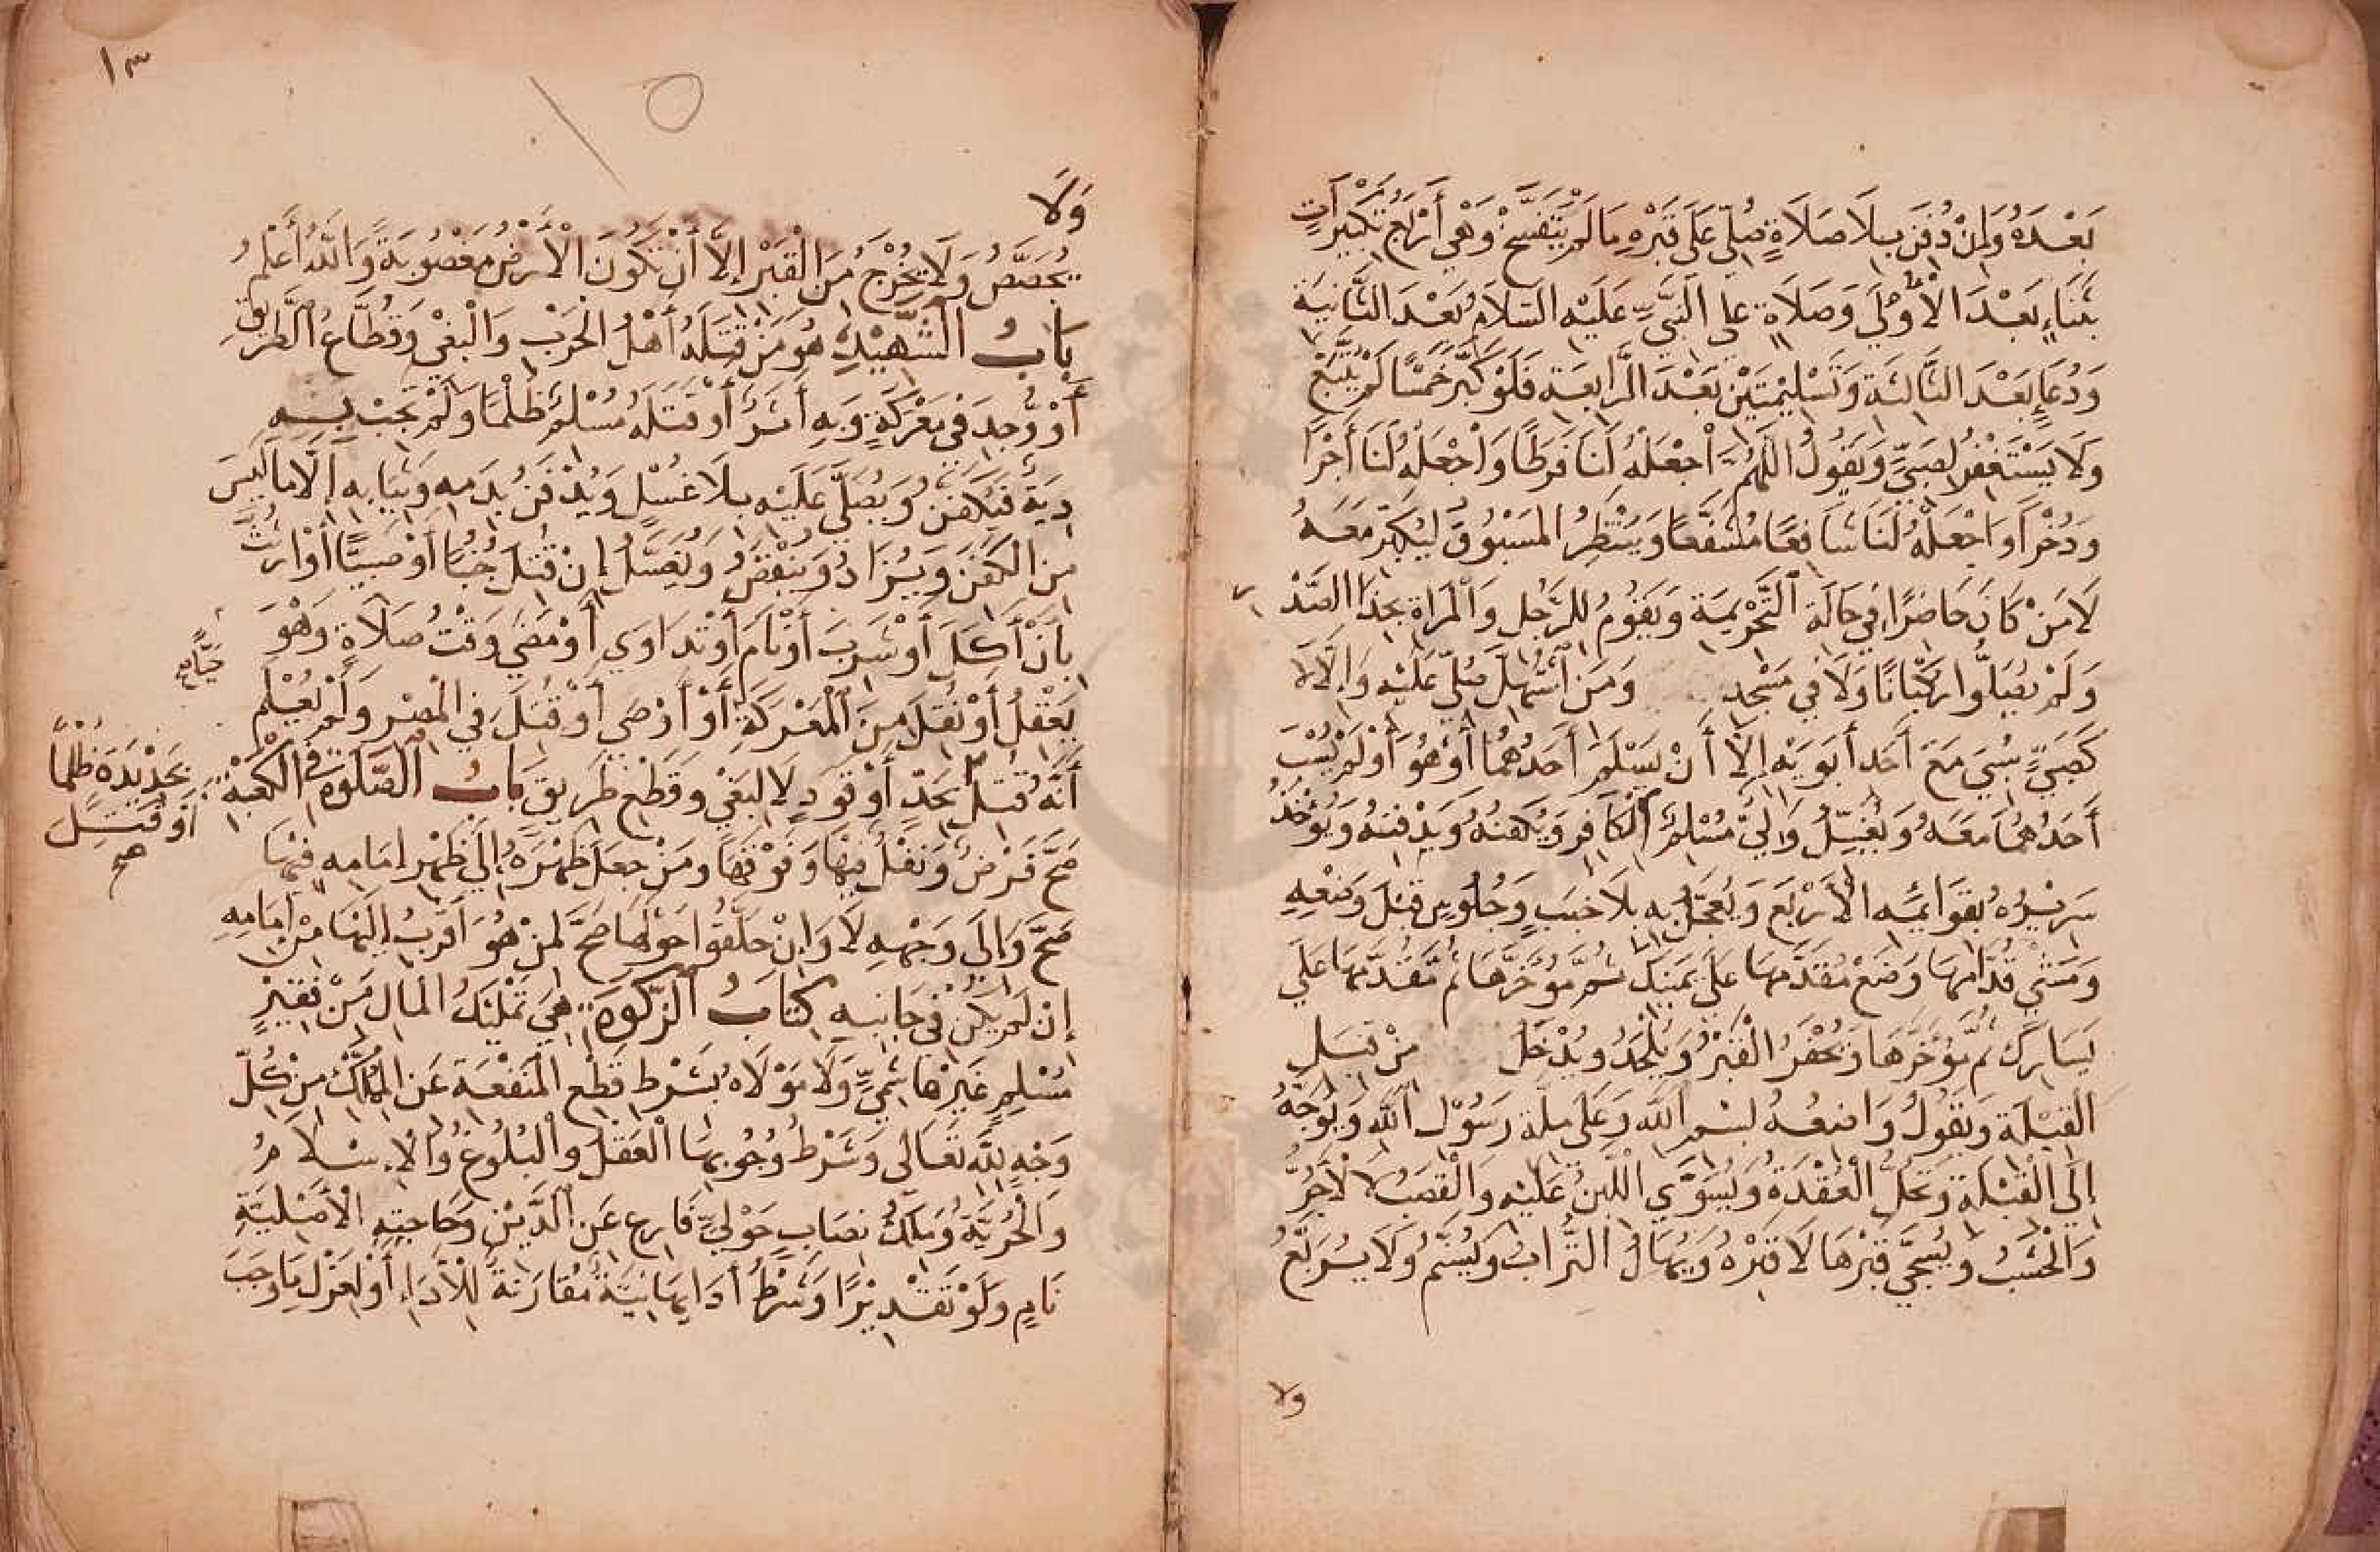 بَعْدَهُ وَلِمَنْ دُفِنَ بِلَا صَلَاةٍ صُلِّيَ عَلَى قَبْرِهِ مَا لَمْ يَتَفَسَّخْ وَهِيَ أَرْبَعُ تَكْبِيرَاتٍ
بِثَنَاءٍ بَعْدَ الْأُوْلَى وَصَلَاةٍ عَلَى النَّبِيِّ عَلَيْهِ السَّلَامُ بَعْدَ الثَّانِيَةِ
وَدُعَاءٍ بَعْدَ الثَّالِثَةِ وَتَسْلِيْمَتَيْنِ بَعْدَ الرَّابِعَةِ فَلَوْ كَبَّرَ خَمْسًا لَمْ يُتْبَعْ
وَلَا يَسْتَغْفِرُ لِصَبِيٍّ وَيَقُولُ اللَّهُمَّ اجْعَلْهُ لَنَا فَرَطًا وَاجْعَلْهُ لَنَا أَجْرًا
وَدُخْرًا وَاجْعَلْهُ لَنَا شَافِعًا مُشَفَّعًا وَيَنْتَظِرُ المَسْبُوقُ لِيُكَبِّرَ مَعَهُ
لَا مَنْ كَانَ حَاضِرًا فِي حَالَةِ التَّحْرِيمَةِ وَيَقُومُ لِلرَّجُلِ وَالْمَرْأَةِ بِحِذَا الصَّدْ
وَلَمْ يُصَلُّوا رُكْبَانًا وَلَا فِي مَسْجِدٍ وَمَنِ اسْتَهَلَّ صُلِّيَ عَلَيْهِ وَإِلَّا لَا
كَصَبِيٍّ سُبِيَ مَعَ أَحَدِ أَبَوَيْهِ إِلَّا أَنْ يُسْلِمَ أَحَدُهُمَا أَوْ هُوَ أَوْ لَمْ يُسْبَ
أَحَدُهُمَا مَعَهُ وَيُغَسِّلُ وَلِيٌّ مُسْلِمٌ الْكَافِرَ وَيُكَفِّنُهُ وَيَدْفِنُهُ وَيُؤْخَذُ
سَرِيْرُهُ بِقَوَائِمِهِ الْأَرْبَعِ وَيُعَجَّلُ بِهِ بِلَا خَبَبٍ وَجُلُوسٍ قَبْلَ وَضْعِهِ
وَمَشْيٍ قُدَّامَهَا وَضَعْ مُقَدَّمَهَا عَلَى يَمِيْنِكَ ثُمَّ مُؤَخَّرَهَا ثُمَّ مُقَدَّمَهَا عَلَى
يَسَارِكَ ثُمَّ مُؤَخَّرَهَا وَيُحْفَرُ الْقَبْرُ وَيُلْحَدُ وَيُدْخَلُ مِنْ قِبَلِ
الْقِبْلَةِ وَيَقُولُ وَاضِعُهُ بِسْمِ اللَّهِ وَعَلَى مِلَّةِ رَسُوْلِ اللَّهِ وَيُوَجَّهُ
إِلَى الْقِبْلَةِ وَتُحَلُّ الْعُقْدَةُ وَيُسَوَّى اللَّبِنُ عَلَيْهِ وَالْقَصَبُ لَا الْآجُرُّ
وَالْخَشَبُ وَيُسَجَّى قَبْرُهَا لَا قَبْرُهُ وَيُهَالُ التُّرَابُ وَيُسَنَّمُ وَلَا يُرَبَّعُ
ولا
١٣
وَلَا
يُجَصَّصُ وَلَا يُخْرَجُ مِنَ الْقَبْرِ إِلَّا أَنْ تَكُونَ الْأَرْضُ مَغْصُوبَةً وَاللَّهُ أَعْلَمُ
بَابُ الشَّهِيْدِ هُوَ مَنْ قَتَلَهُ أَهْلُ الْحَرْبِ وَالْبَغْيِ وَقُطَّاعُ الطَّرِيقِ
أَوْ وُجِدَ فِي مَعْرَكَةٍ وَبِهِ أَثَرٌ أَوْ قَتَلَهُ مُسْلِمٌ ظُلْمًا وَلَمْ تَجِبْ بِهِ
دِيَةٌ فَيُكَفَّنُ وَيُصَلَّى عَلَيْهِ بِلَا غُسْلٍ وَيُدْفَنُ بِدَمِهِ وَثِيَابِهِ إِلَّا مَا لَيْسَ
مِنَ الْكَفَنِ وَيُزَادُ وَيُنْقَصُ وَيُغَسَّلُ إِنْ قُتِلَ جُنُبًا أَوْ صَبِيًّا أَوْ ارْتُثَّ
بِأَنْ أَكَلَ أَوْ شَرِبَ أَوْ نَامَ أَوْ تَدَاوَى أَوْ مَضَى وَقْتُ صَلَاةٍ وَهُوَ
حَيًّا
يَعْقِلُ أَوْ نُقِلَ مِنَ الْمَعْرَكَةِ أَوْ أَوْصَى أَوْ قُتِلَ فِي الْمِصْرِ وَلَمْ يُعْلَمْ
أَنَّهُ قُتِلَ بِحَدٍّ أَوْ قَوَدٍ لَا لِبَغْيٍ وَقَطْعِ طَرِيقٍ بَابُ الصَّلَوةِ فِي الْكَعْبَةِ
بِحَدِيْدَةٍ ظُلْمًا
أَوْ قُتِلَ
صح
صَحَّ فَرْضٌ وَنَفْلٌ فِيْهَا وَفَوْقَهَا وَمَنْ جَعَلَ ظَهْرَهُ إِلَى ظَهْرِ إِمَامِهِ فِيْهَا
صَحَّ وَإِلَى وَجْهِهِ لَا وَإِنْ حَلَّقُوا حَوْلَهَا صَحَّ لِمَنْ هُوَ أَقْرَبُ إِلَيْهَا مِنْ إِمَامِهِ
إِنْ لَمْ يَكُنْ فِي جَانِبِهِ كِتَابُ الزَّكَوةِ هِيَ تَمْلِيْكُ الْمَالِ مِنْ فَقِيْرٍ
مُسْلِمٍ غَيْرِ هَاشِمِيٍّ وَلَا مَوْلَاهُ بِشَرْطِ قَطْعِ الْمَنْفَعَةِ عَنِ الْمُمَلِّكِ مِنْ كُلِّ
وَجْهٍ لِلَّهِ تَعَالَى وَشَرْطُ وُجُوبِهَا الْعَقْلُ وَالْبُلُوغُ وَالْإِسْلَامُ
وَالْحُرِّيَّةُ وَمِلْكُ نِصَابٍ حَوْلِيٍّ فَارِغٍ عَنِ الدَّيْنِ وَحَاجَتِهِ الْأَصْلِيَّةِ
نَامٍ وَلَوْ تَقْدِيْرًا وَشَرْطُ أَدَائِهَا نِيَّةٌ مُقَارِنَةٌ لِلْأَدَاءِ أَوْ لِعَزْلِ مَا وَجَبَ